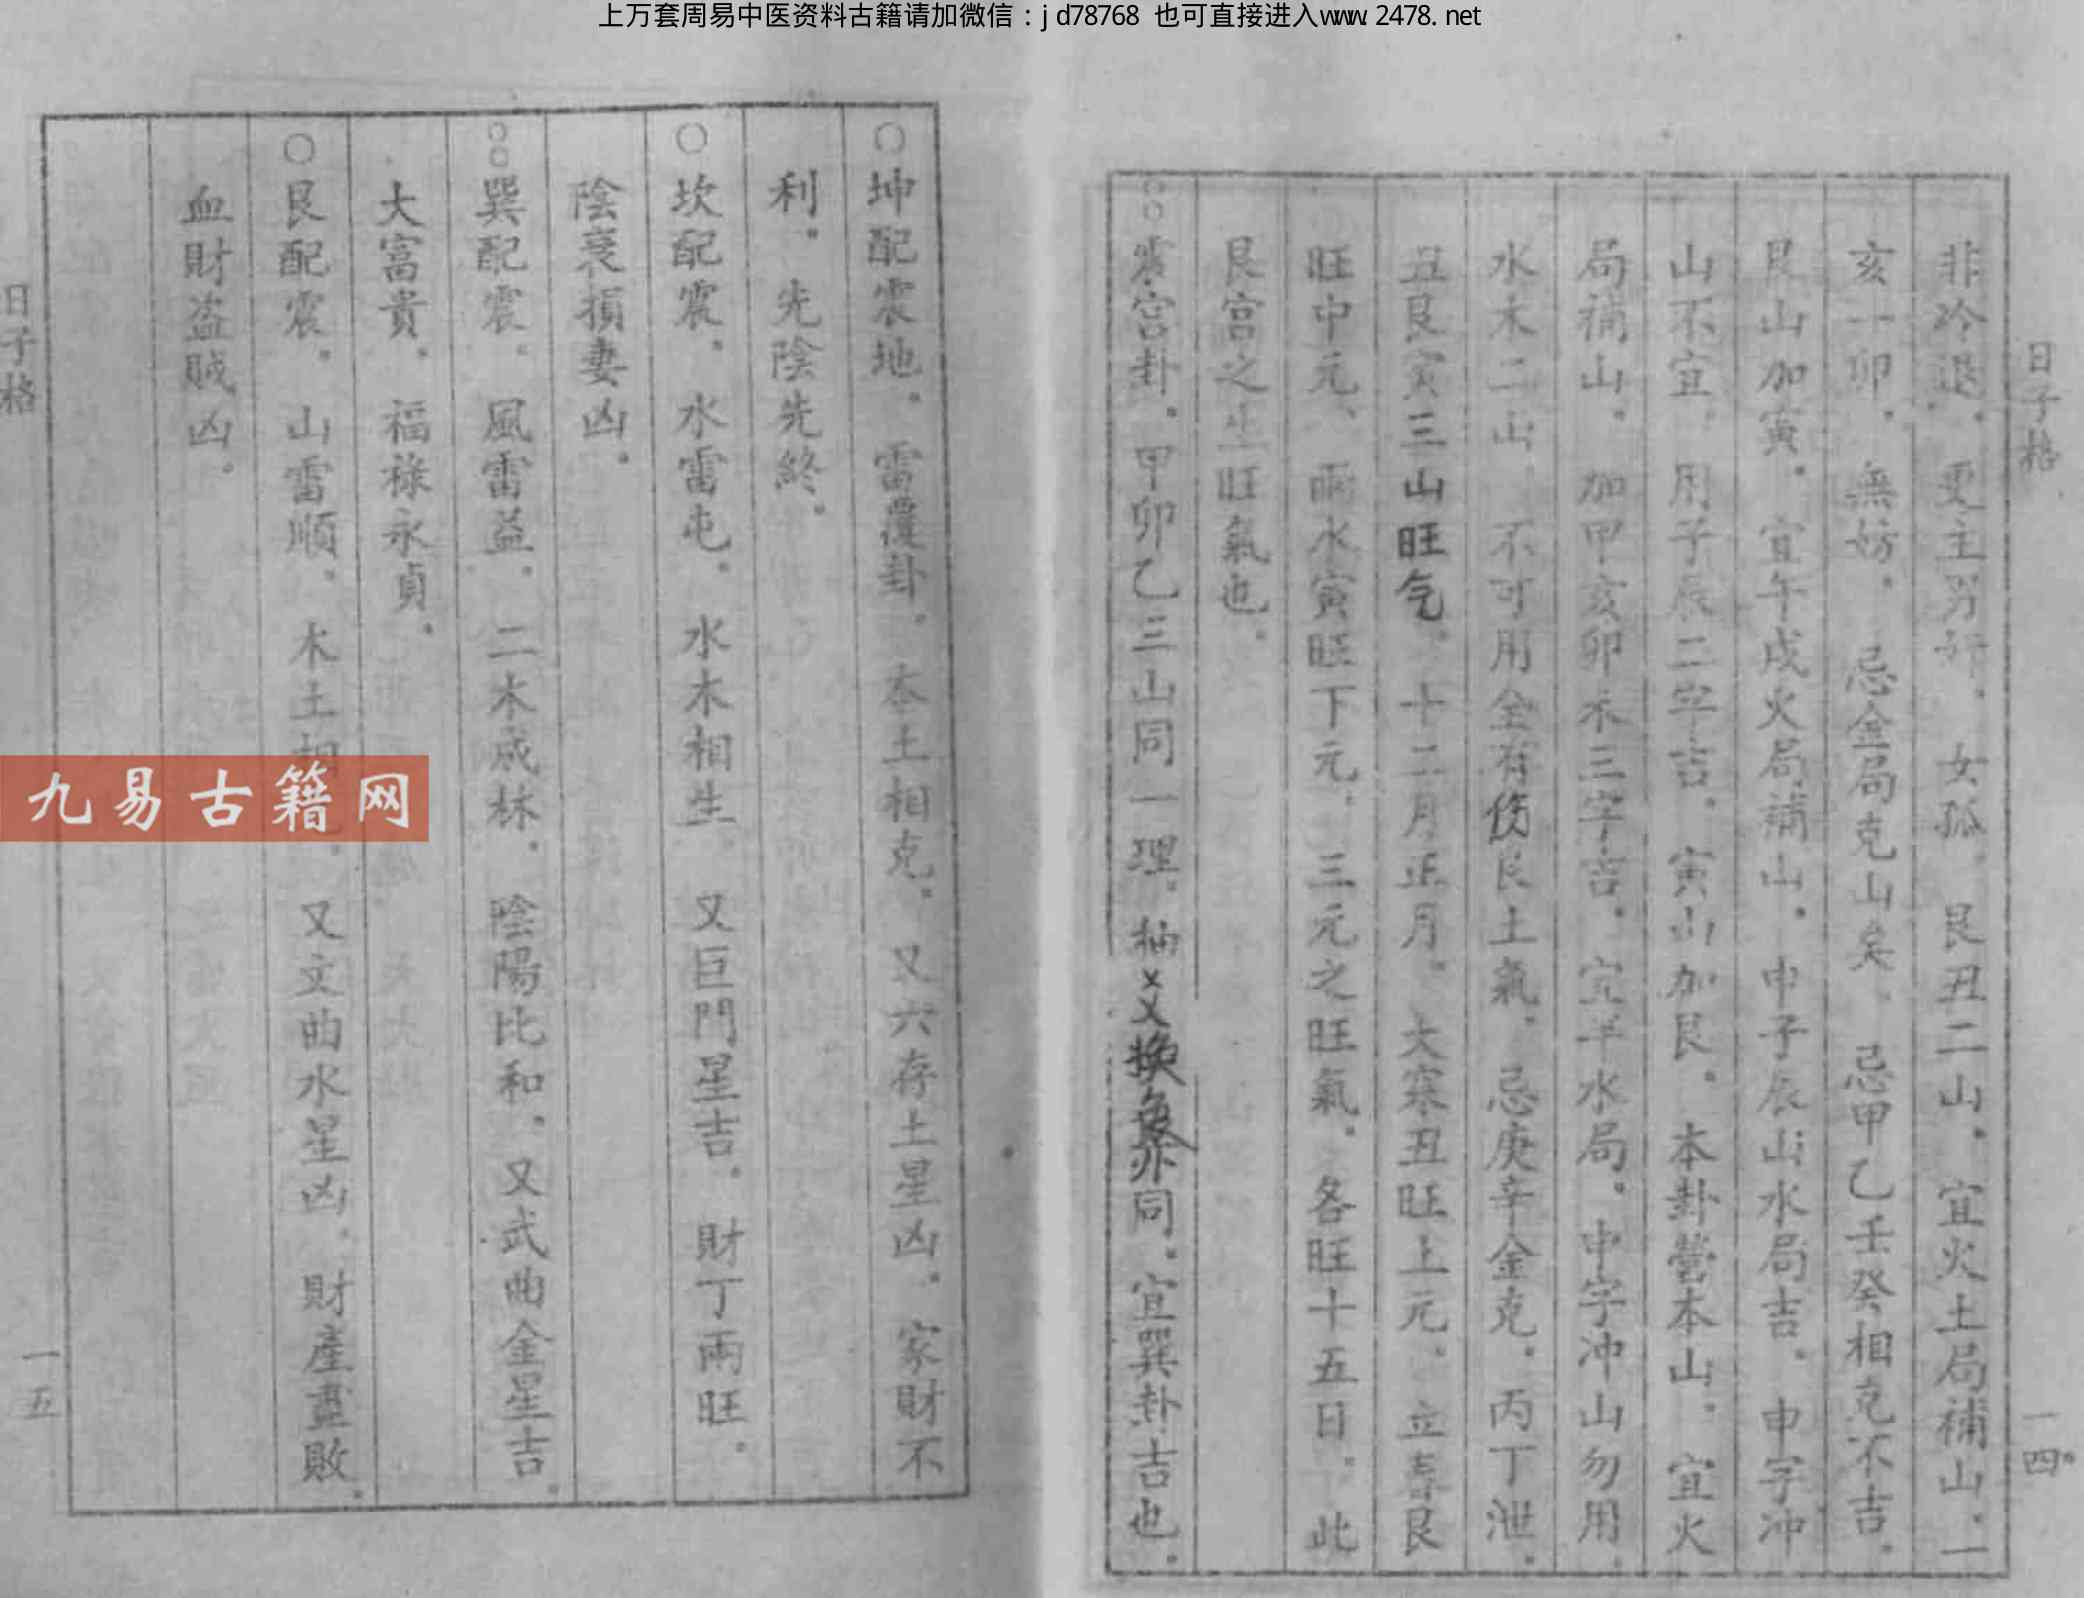 上万套周易中医资料古籍请加微信：jd78768 也可直接进入www.2478.net
日子格
一四
非冷退。更主男奸。女孤。艮丑二山。宜火土局補山。一
亥一卯。無妨。忌金局克山矣。忌甲乙壬癸相克不吉。
艮山加寅。宜午戌火局補山。申子辰山水局吉。申字冲
山不宜。用子辰二字吉。寅山加艮。本卦營本山。宜火
局補山。加甲亥卯木三字吉。宜半水局。申字冲山勿用。
水木二山 不可用全有伤艮土氣。忌庚辛金克。丙丁泄。
丑艮寅三山旺气。十二月正月。大寒丑旺上元。立春艮
旺中元、雨水寅旺下元。三元之旺氣。各旺十五日。此
艮宫之生旺氣也。
○○震宫卦。甲卯乙三山同一理。抽爻換象亦同。宜巽卦吉也。
○坤配震地。雷覆卦。本土相克。又六存土星凶。家財不
利。先陰先終。
○坎配震。水雷屯。水木相生 又巨門星吉。財丁兩旺。
陰衰損妻凶。
○○巽配震。風雷益。二木成林。陰陽比和。又武曲金星吉。
大富貴。福祿永貞。
○艮配震。山雷順。木土相 又文曲水星凶。財產盡敗。
血財盗賊凶。
日子格
一五
九易古籍网